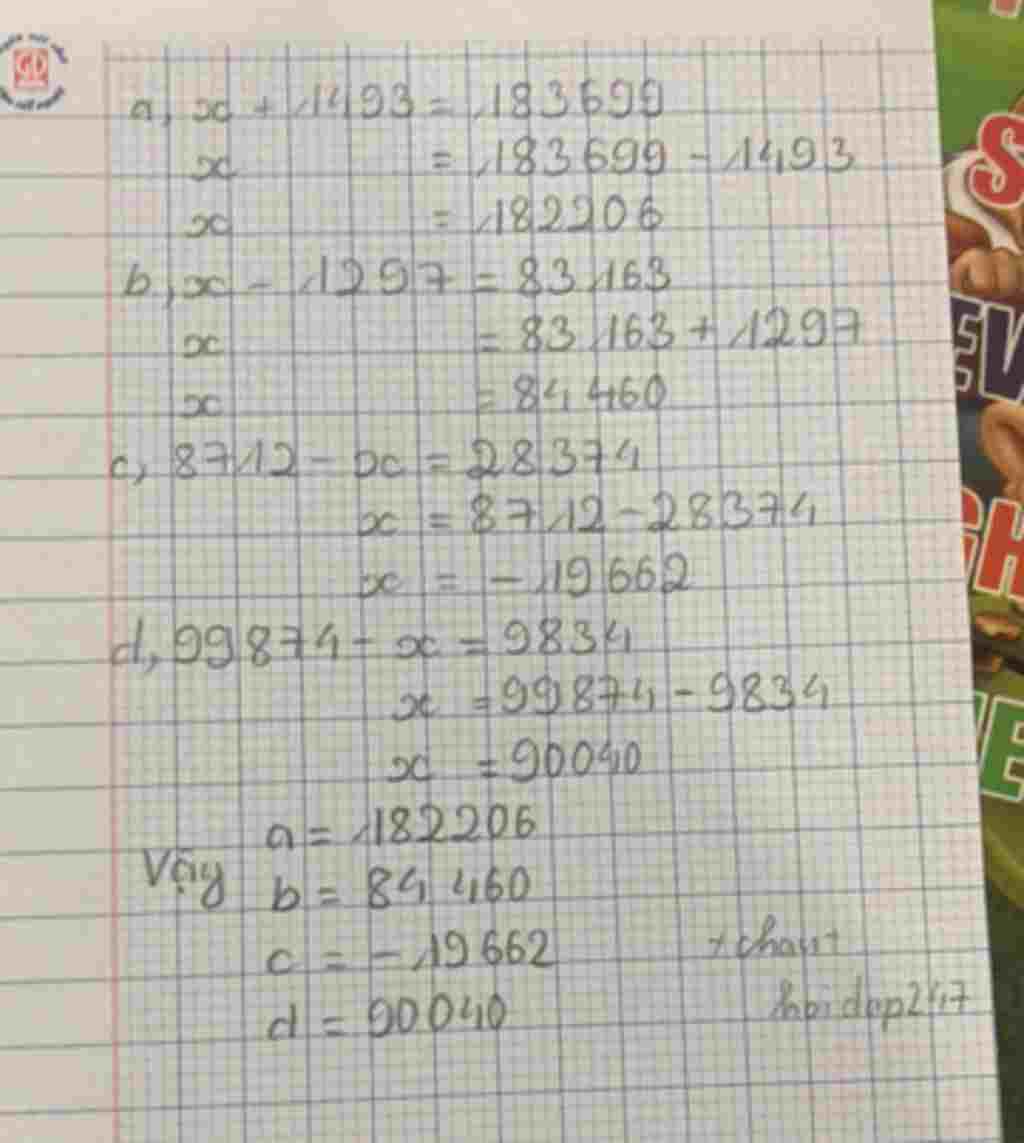 GD
a, x + 1493 = 183699
x = 183699 - 1493
x = 182206
b, x - 1297 = 83163
x = 83163 + 1297
x = 84460
c, 8712 - x = 28374
x = 8712 - 28374
x = - 19662
d, 99874 - x = 9834
x = 99874 - 9834
x = 90040
a = 182206
Vậy
b = 84460
c = - 19662
d = 90040
hoidap247
S
EV
GH
E